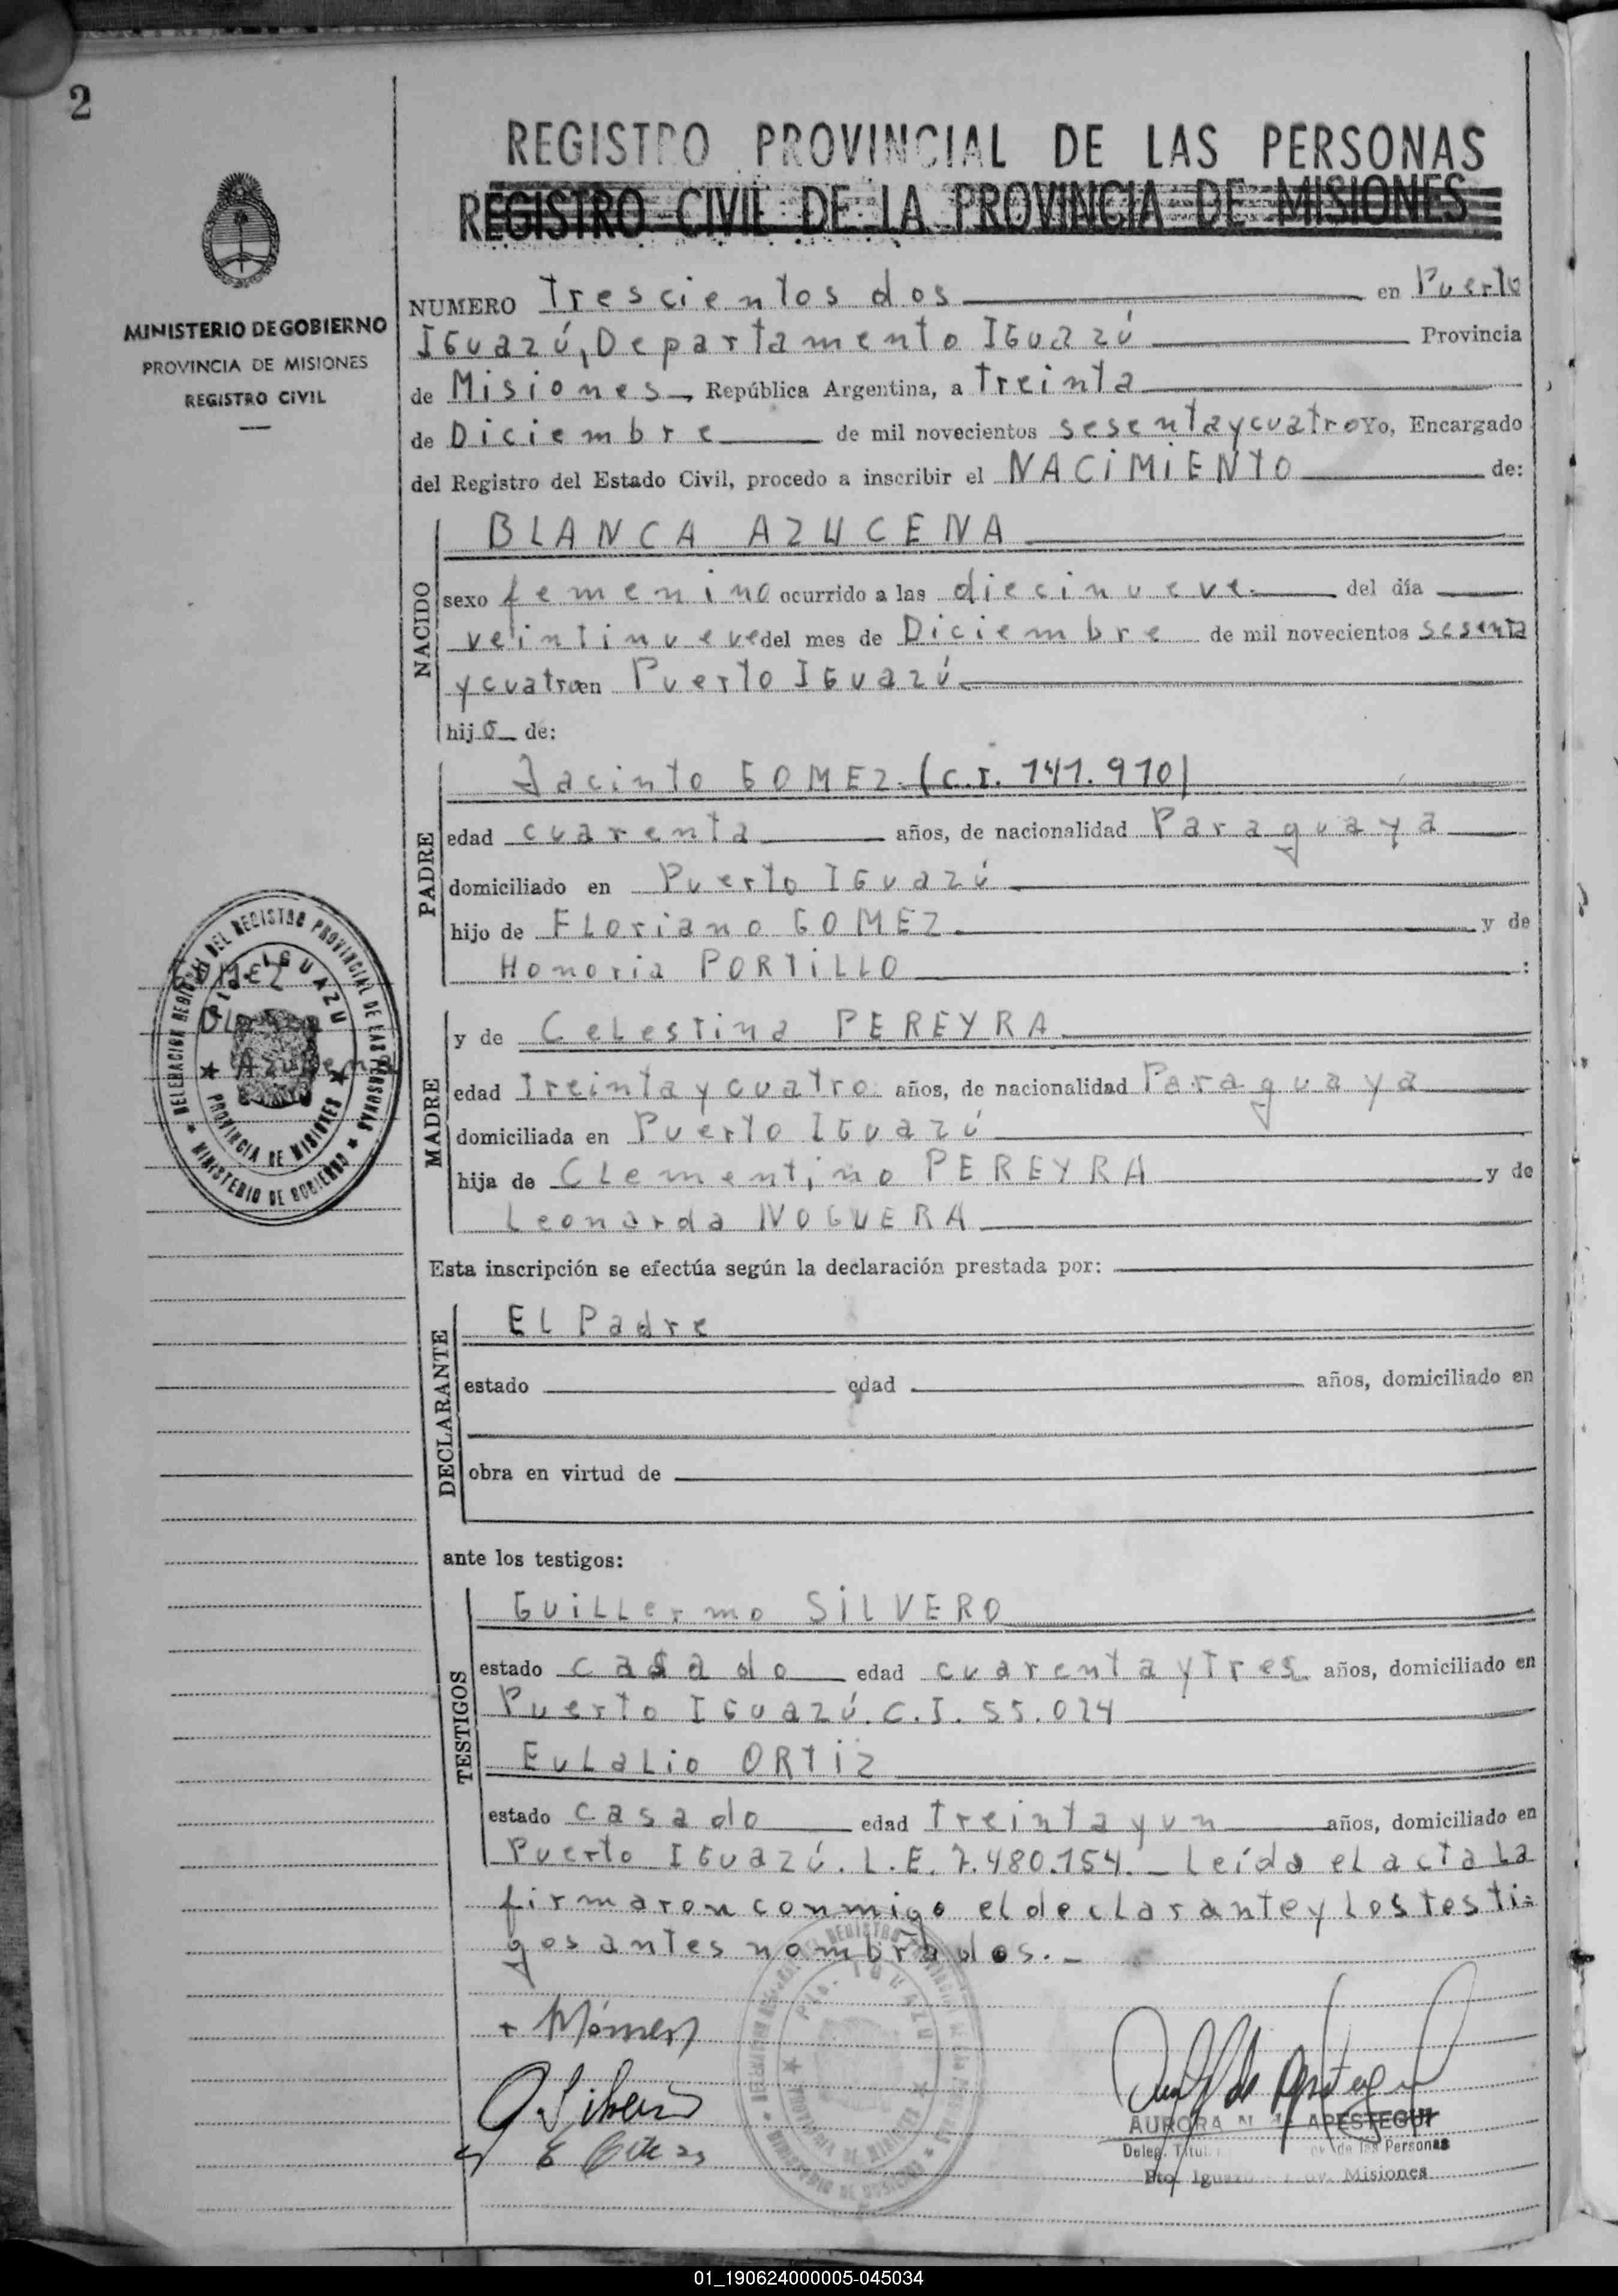 2
REGISTRO PROVINCIAL DE LAS PERSONAS
REGISTRO CIVIL DE LA PROVINCIA DE MISIONES
MINISTERIO DE GOBIERNO
PROVINCIA DE MISIONES
REGISTRO CIVIL
NUMERO Trescientos dos en Puerto
IGuazú, Departamento IGuazú Provincia
de Misiones, República Argentina, a Treinta
de Diciembre de mil novecientos sesentaycuatro Yo, Encargado
del Registro del Estado Civil, procedo a inscribir el NACIMIENTO de:
NACIDO
BLANCA AZUCENA
sexo femenino ocurrido a las diecinueve del día
veintinueve del mes de Diciembre de mil novecientos sesenta
ycuatro en Puerto IGuazú.
hijo de:
PADRE
Jacinto GOMEZ. (C.I. 141.910)
edad cuarenta años, de nacionalidad Paraguaya
domiciliado en Puerto IGuazú
hijo de FLoriano GOMEZ y de
Honoria PORTILLO :
GOMEZ
Blanca
Azucena
DELEGACION REGIONAL DEL REGISTRO PROVINCIAL DE LAS PERSONAS
PTO. IGUAZU
PROVINCIA DE MISIONES
MINISTERIO DE GOBIERNO
MADRE
y de CeLestina PEREYRA
edad Treinta y cuatro años, de nacionalidad Paraguaya
domiciliada en Puerto IGuazú
hija de CLementino PEREYRA y de
Leonarda NOGUERA
Esta inscripción se efectúa según la declaración prestada por:
DECLARANTE
EL Padre
estado edad años, domiciliado en
obra en virtud de
ante los testigos:
TESTIGOS
GuiLLermo SILVERO
estado casado edad cuarentaytres años, domiciliado en
Puerto IGuazú. C.I. 55.024
EuLaLio ORTIZ
estado casado edad Treintayun años, domiciliado en
Puerto IGuazú. L.E. 7.480.154. Leída el acta La
firmaron conmigo el decLarante y Los testi=
gos antes nombrados.
AURORA N. APESTEGUI
Deleg. Titul. de las Personas
Pto. Iguazú Prov. Misiones
01_190624000005-045034